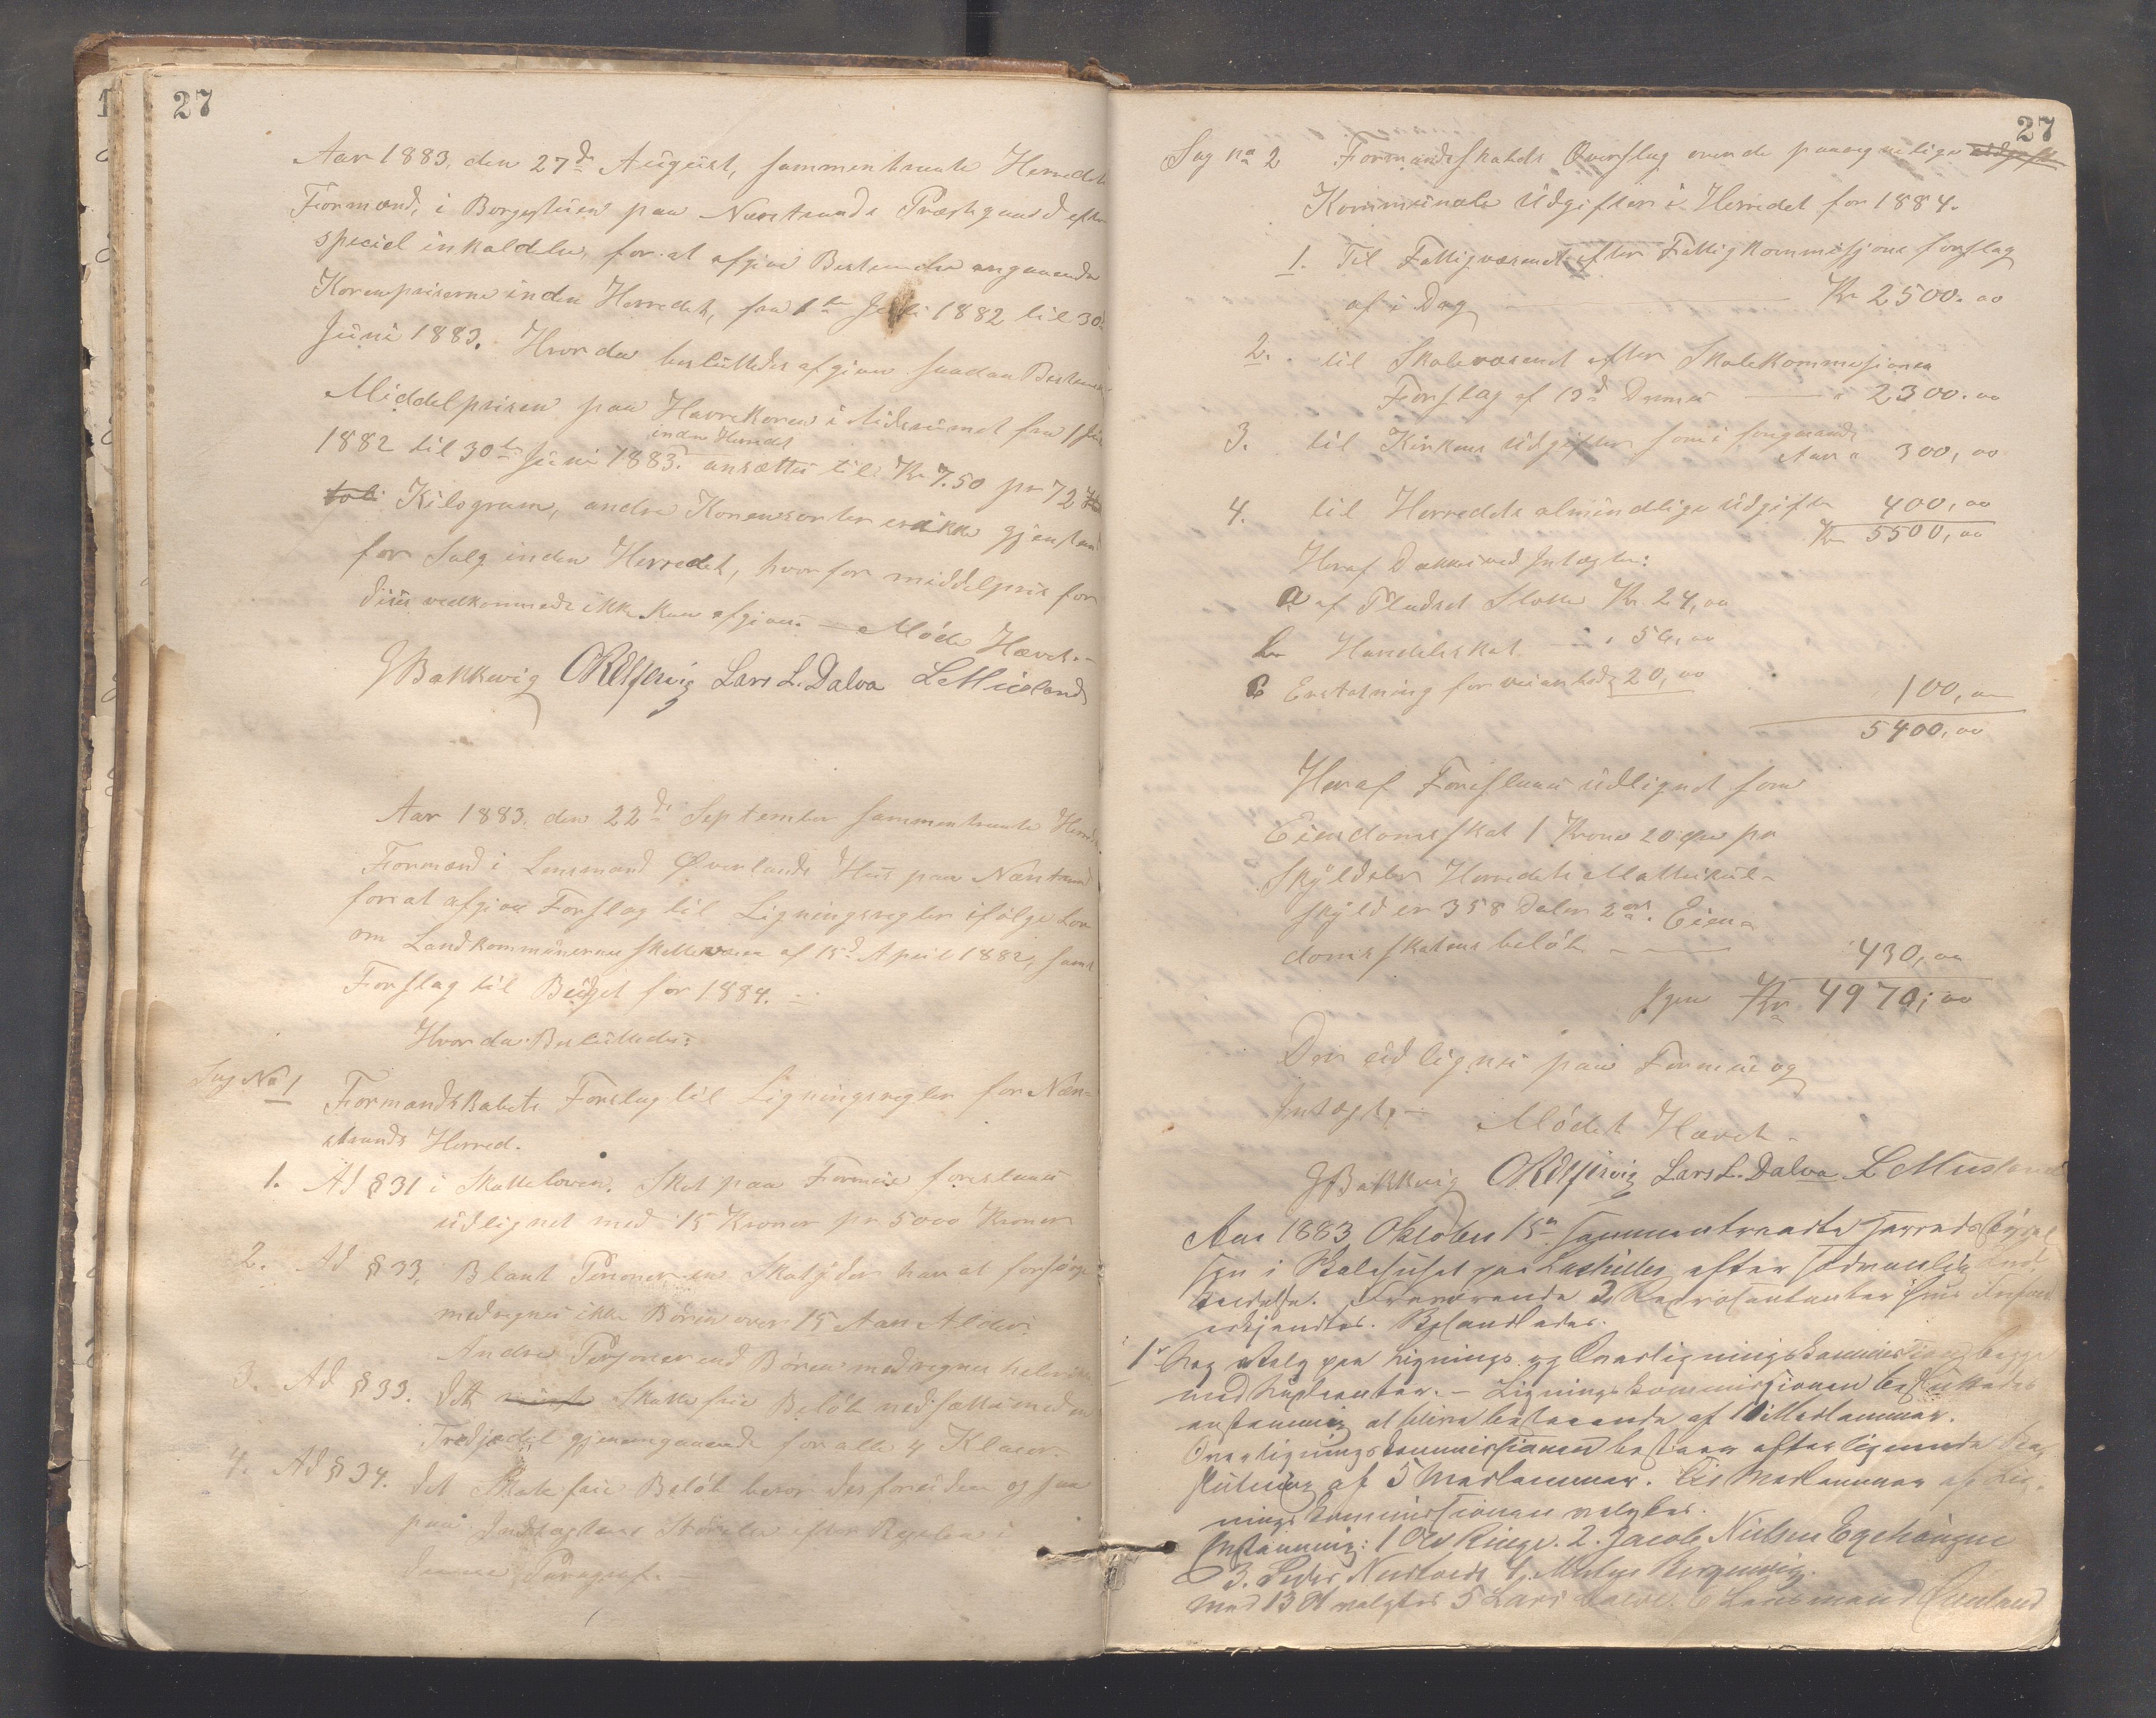 27
Aar 1883, den 27de August, sammentraadte Herredets
Formænd, i Borgestuen paa Nærstrands Præstgaard efter
speciel inkaldelse, for at afgive Bestemelse angaaende
Kornpriserne inden Herredet, fra 1ste Juli 1882 til 30te
Juni 1883. Hvor da besluttedes afgiven saadan Bestemelse
Middelprisen paa Havrekoren i tidsrumet fra 1 Juli
1882 til 30te Juni 1883. inden Herredet ansættes til Kr 7.50 pr 72
Kilogram, andre Kornsorter er ikke gjenstand
for Salg inden Herredet, hvorfor middelpris for
diss vedkommende ikke kan afgives. — Möde Hævet. —
J Bakkevig O R Elfarvig Lars L. Dalva L Musland
Aar 1883, den 22de September sammentraadte Herreds
Formænd i Lensmand Øverlands Hus paa Nærstrand
for at afgive Forslag til Ligningsregler ifölge Lov
om Landkommunernes skattevæsen af 15de April 1882, samt
Forslag til Budjet for 1884. —
Hvor da Besluttedes:
Sag No 1 Formandskabets Forslag til Ligningsregler for Nær-
strands Herred.
1. Ad § 31 i Skatteloven. Skat paa Formue foreslaaes
udlignet med 15 Kroner pr 5000 Kroner
2. Ad § 33, Blant Personer en Skatyder har at forsörge
medregnes ikke Börn over 15 Aar Alder.
Andre Personer end Börn medregnes
3. Ad § 33. Det Skattefrie Belöb nedsættes med en
Trediedel gjennemgaaende for alle 4 Klasser.
4. Ad § 34. det Skatefrie Belöb beror desforuden og saa
paa Indtægtens Störelse efter Regelen i
denne Paragraf. —
27
Sag no 2 Formandsskabets Overslag over de paaregnelige udgifter
Kommunale Udgifter i Herredet for 1884.
1. Til Fattigvæsenet efter Fattigkommisjons forslag
af i Dag — Kr 2500.00
2. til Skolevæsenet efter Skolekommisjonen
Forslag af 13de Dennes — " 2300.00
3. til Kirkens Udgifter som i foregaaende
Aar " 300,00
4. til Herredets almindelige udgifter 400,00
Kr 5500,00
Heraf Dækkes ved Intægter:
a af Pladset Slotte Kr. 24,00
b Handelsskat — " 56,00
c Erstatning for veiarbeide 20,00
100,00
5400,00
Heraf Foreslaaes udlignet som
Eiendomsskat 1 Krone 20 Öre pr
Skylddaler Herredets Matrikul-
skyld er 358 Daler 2 ort. Eien-
domsskatens belöb — 430,00
Igjen Kr 4970,00
Der udlignes paa Formue og
Intægt. — Mödet Hævet. —
J Bakkevig O R Elfarvig Lars L. Dalva L Musland
Aar 1883 Oktober 15de sammentraadte Herredsstyrel
sen i Skolehuset paa efter sedvanlig
kaldelse. Fraværende 2 Repræsentanter
erkjendtes. Behandledes.
1te Sag Valg paa Lignings og Overligningskommissionen begge
med Supleanter. — Ligningskommissionen besluttedes
enstemmig at blive bestaaende af 10 Medlemmer.
Overligningskommissionen bestaar efter lignende Be
slutning af 5 Medlemmer. Til Medlemmer af Lig-
ningskommissionen valgtes.
Enstemmig: 1 Ole Ringe. 2. Jacob Nielsen Egehaugen
3. Peder Nerland 4. Mbergervig.
Med 13 St valgtes 5 Lars Dalve. 6 Lensmand Øverland